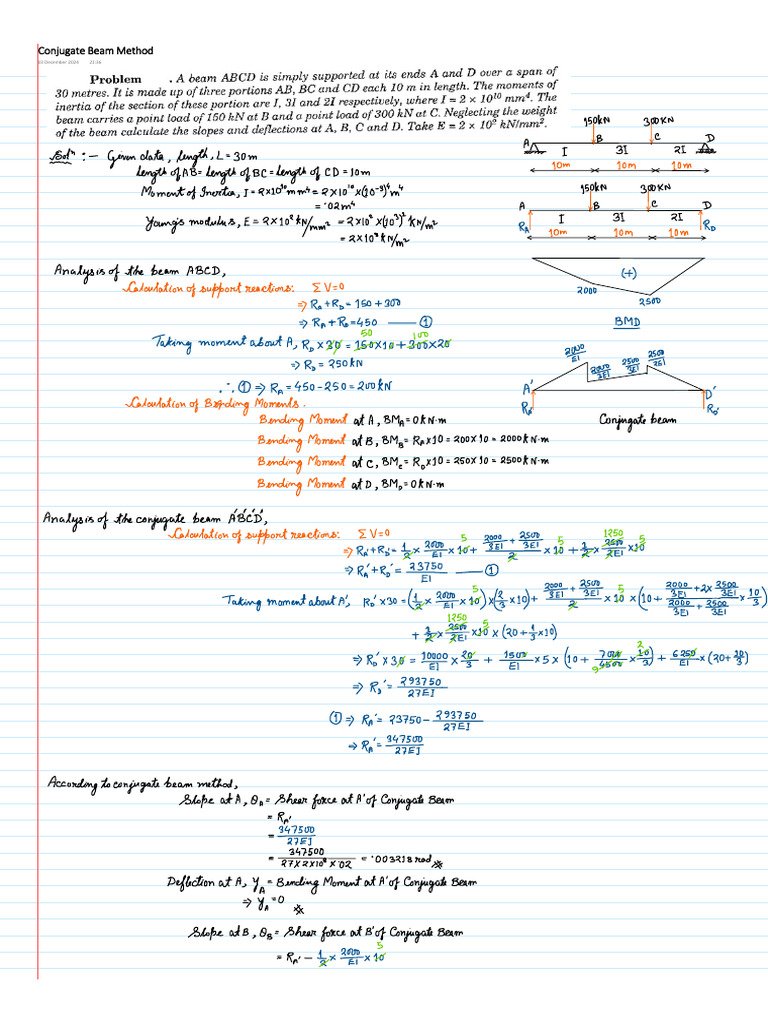 Conjugate Beam Method
03 December 2024 21:36
Problem . A beam ABCD is simply supported at its ends A and D over a span of
30 metres. It is made up of three portions AB, BC and CD each 10 m in length. The moments of
inertia of the section of these portion are I, 3I and 2I respectively, where I = 2 × 10¹⁰ mm⁴. The
beam carries a point load of 150 kN at B and a point load of 300 kN at C. Neglecting the weight
of the beam calculate the slopes and deflections at A, B, C and D. Take E = 2 × 10² kN/mm².
150kN 300kN
A B C D
I 3I 2I
10m 10m 10m
Solⁿ :- Given data, length, L = 30m
length of AB = length of BC = length of CD = 10m
Moment of Inertia, I = 2×10¹⁰ mm⁴ = 2×10¹⁰×(10⁻³)⁴ m⁴
= .02m⁴
Young's modulus, E = 2×10² kN/mm² = 2×10²×(10³)² kN/m²
= 2×10⁸ kN/m²
150kN 300kN
A B C D
R_A I 3I 2I R_D
10m 10m 10m
(+)
2000
2500
BMD
Analysis of the beam ABCD,
Calculation of support reactions: ΣV=0
⇒ R_A+R_D = 150+300
⇒ R_A+R_D = 450 —— ①
Taking moment about A, R_D × 30 = 150×10 + 300×20
50 100
⇒ R_D = 250kN
∴ ① ⇒ R_A = 450-250 = 200kN
2000/EI 2000/3EI 2500/3EI 2500/2EI
A' D'
R_A' R_D'
Conjugate beam
Calculation of Bending Moments.
Bending Moment at A, BM_A = 0kN·m
Bending Moment at B, BM_B = R_A×10 = 200×10 = 2000kN·m
Bending Moment at C, BM_C = R_D×10 = 250×10 = 2500kN·m
Bending Moment at D, BM_D = 0kN·m
Analysis of the conjugate beam A'B'C'D',
Calculation of support reactions: ΣV=0
⇒ R_A'+R_D' = 1/2 × 2000/EI × 10 5 + (2000/3EI + 2500/3EI)/2 × 10 5 + 1/2 × 2500/2EI 1250 × 10 5
⇒ R_A'+R_D' = 23750/EI —— ①
Taking moment about A', R_D'×30 = (1/2 × 2000/EI × 10 5) × (2/3 × 10) + (2000/3EI + 2500/3EI)/2 × 10 5 × (10 + (2000/3EI + 2× 2500/3EI)/(2000/3EI + 2500/3EI) × 10/3)
+ 1/2 × 2500/2EI 1250 × 10 5 × (20 + 1/3 × 10)
⇒ R_D' × 30 = 10000/EI × 20/3 + 1500/EI × 5 × (10 + 7000/4500 × 10/3) + 6250/EI × (20 + 10/3)
2 9
⇒ R_D' = 293750/27EI
① ⇒ R_A' = 23750 - 293750/27EI
⇒ R_A' = 347500/27EI
According to conjugate beam method,
Slope at A, θ_A = Shear force at A' of Conjugate Beam
= R_A'
= 347500/27EI
= 347500/(27×2×10⁸×.02) = .003218 rad
Deflection at A, y_A = Bending Moment at A' of Conjugate Beam
⇒ y_A = 0
Slope at B, θ_B = Shear force at B' of Conjugate Beam
= R_A' - 1/2 × 2000/EI × 10 5